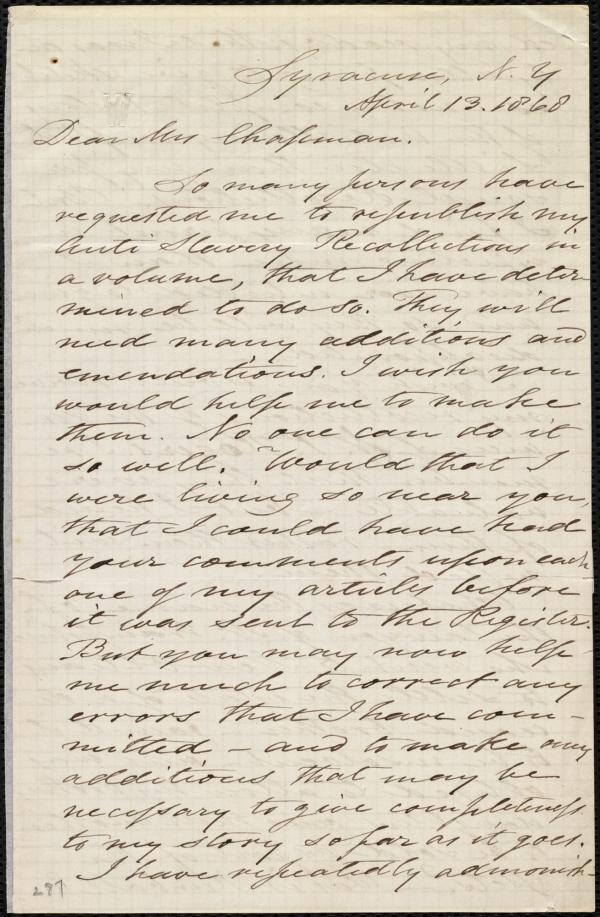 Syracuse, N. Y
April 13. 1868
Dear Mrs Chapman.
So many persons have
requested me to republish my
Anti Slavery Recollections in
a volume, that I have deter
mined to do so. They will
need many additions and
emendations. I wish you
would help me to make
them. No one can do it
so well. Would that I
were living so near you,
that I could have had
your comments upon each
one of my articles before
it was sent to the Register.
But you may now help
me much to correct any
errors that I have com-
mitted - and to make any
additions that may be
necessary to give completeness
to my story so far as it goes.
I have repeatedly admonish-
287